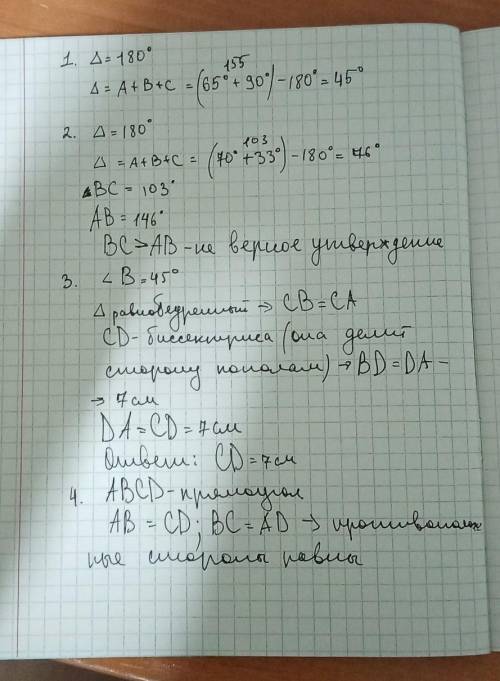 1. Δ = 180°
155
Δ = A + B + C = (65° + 90°) - 180° = 45°
2. Δ = 180°
103
Δ = A + B + C = (70° + 33°) - 180° = 76°
BC = 103°
AB = 146°
BC > AB - не верное утверждение
3. ∠ B = 45°
Δ равнобедренный → CB = CA
CD - биссектриса (она делит
сторону пополам) → BD = DA -
→ 7 см
DA = CD = 7 см
Ответ: CD = 7 см
4. ABCD - прямоугол
AB = CD; BC = AD → противополож
ные стороны равны